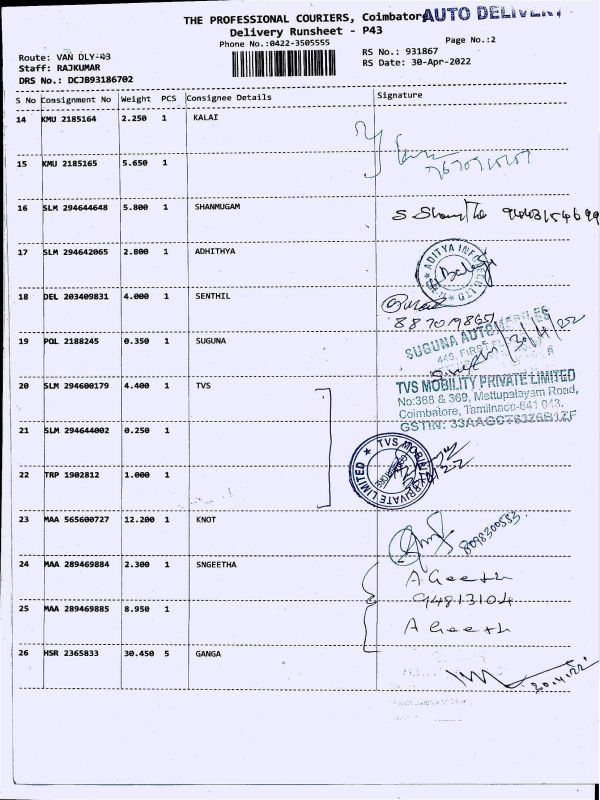 AUTO DELIVERY
THE PROFESSIONAL COURIERS, Coimbatore
Delivery Runsheet - P43
Phone No.:0422-3505555
Page No.:2
Route: VAN DLY-43
Staff: RAJKUMAR
DRS No.: DCJB93186702
RS No.: 931867
RS Date: 30-Apr-2022
S No Consignment No Weight PCS Consignee Details Signature
14 KMU 2185164 2.250 1 KALAI
15 KMU 2185165 5.650 1
16 SLM 294644648 5.800 1 SHANMUGAM
17 SLM 294642065 2.800 1 ADHITHYA
ADITYA INFOTECH LTD
18 DEL 203409831 4.000 1 SENTHIL
19 POL 2188245 0.350 1 SUGUNA
SUGUNA AUTO
30/4/22
20 SLM 294600179 4.400 1 TVS
TVS MOBILITY PRIVATE LIMITED
No:368 & 369, Mettupalayam Road,
Coimbatore, Tamilnadu-641 043.
21 SLM 294644002 0.250 1
TVS MOBILITY PRIVATE LIMITED
22 TRP 1902812 1.000 1
23 MAA 565600727 12.200 1 KNOT
8098300553
24 MAA 289469884 2.300 1 SNGEETHA
A Geeth
94813104
25 MAA 289469885 8.950 1
A Geeth
26 HSR 2365833 30.450 5 GANGA